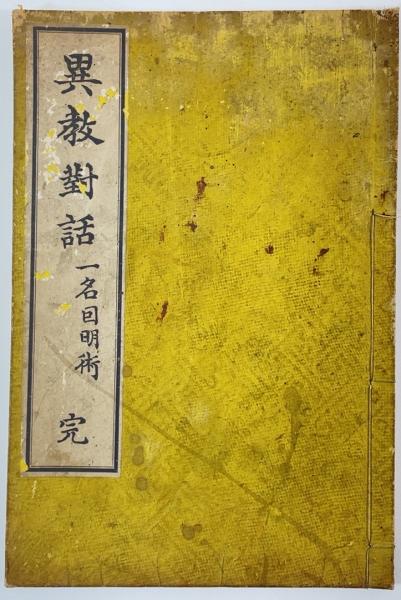 異教對話 一名囘明術 完